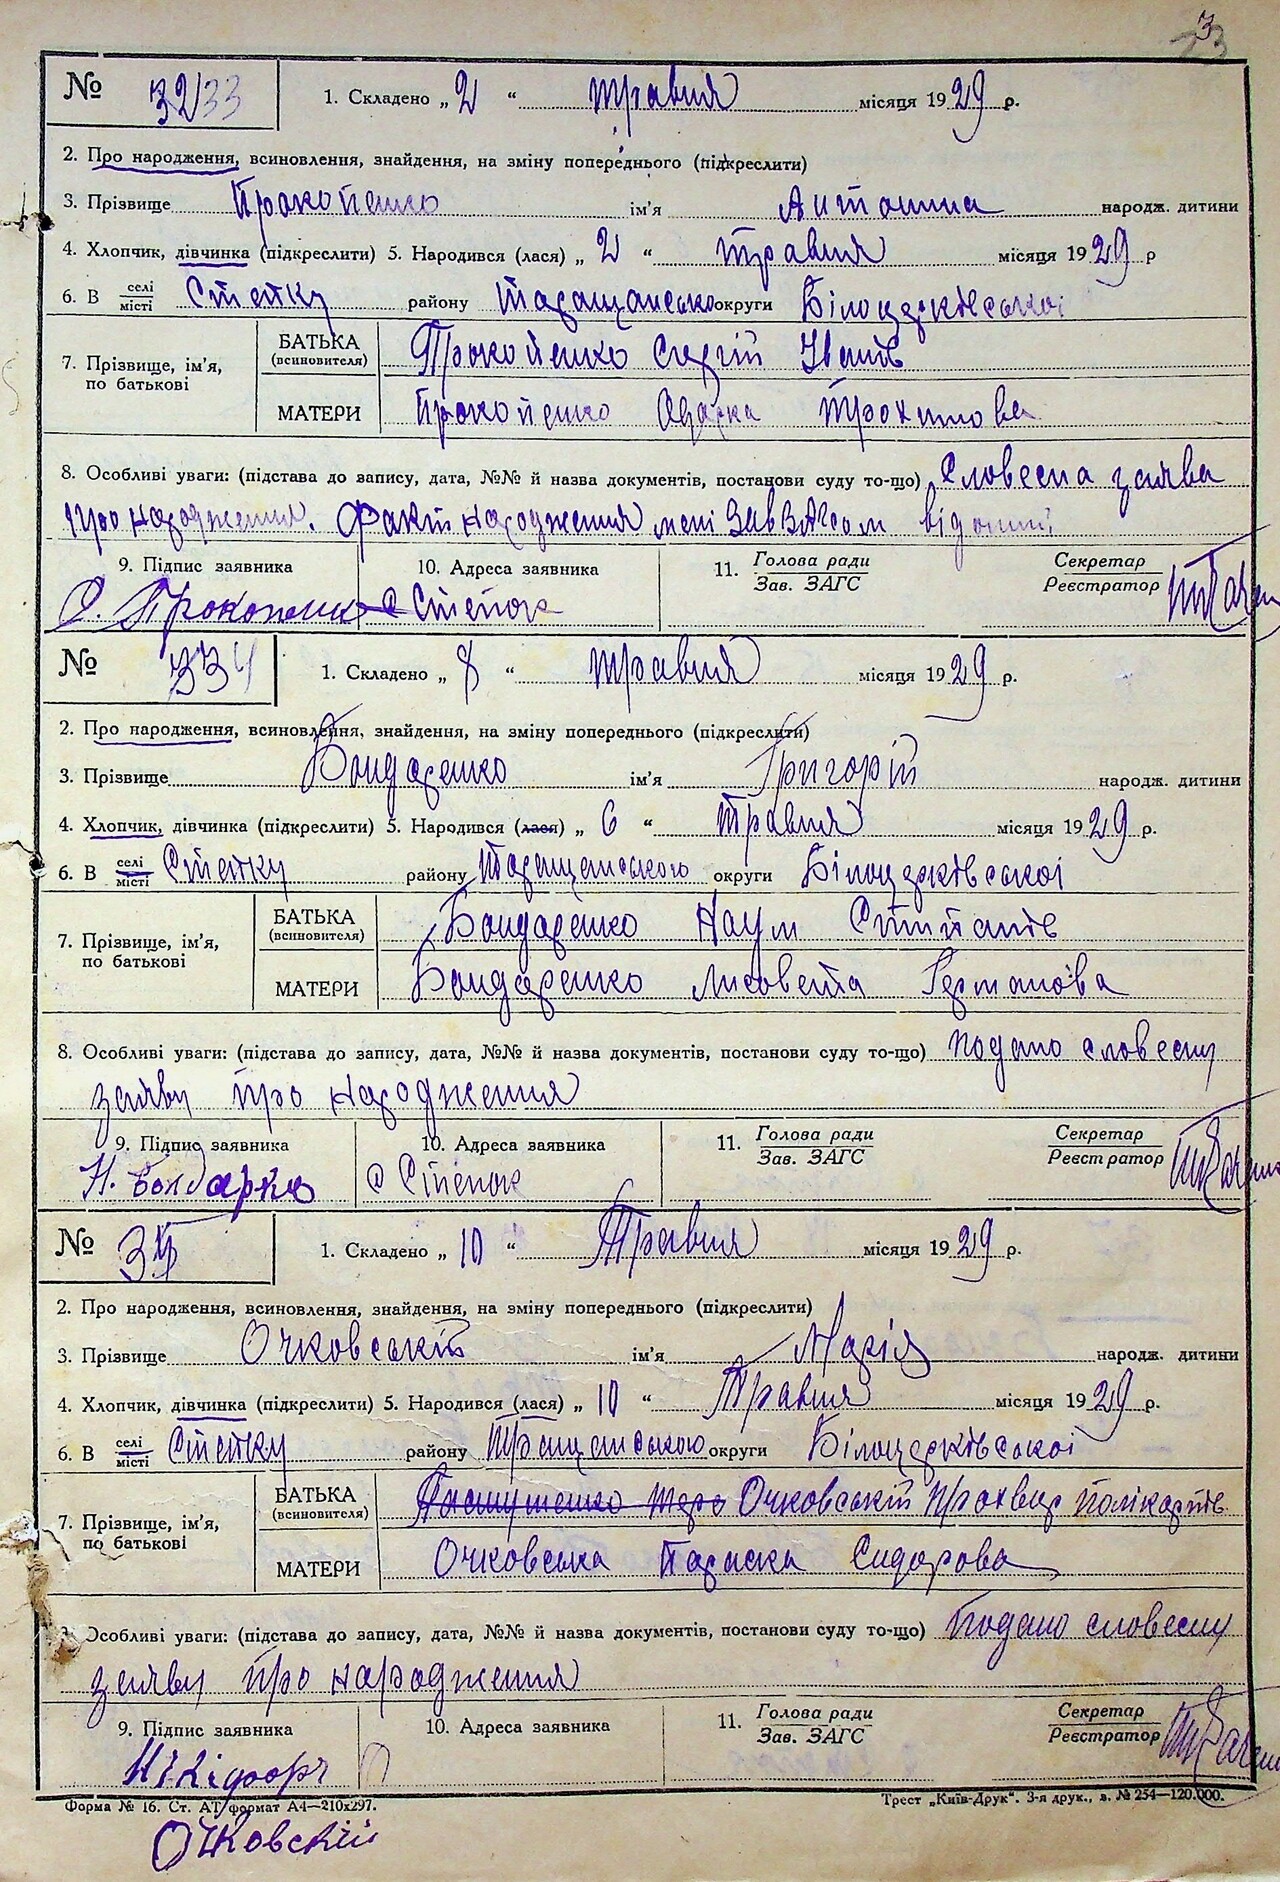 3
33
№ 32/33 1. Складено „ 2 “ травня місяця 1929 р.
2. Про народження, всиновлення, знайдення, на зміну попереднього (підкреслити)
3. Прізвище Прокопенко ім'я Антонина народж. дитини
4. Хлопчик, дівчинка (підкреслити) 5. Народився (лася) „ 2 “ травня місяця 1929 р
6. В селі місті Степку району Таращансько округи Білоцерківської
7. Прізвище, ім'я, по батькові БАТЬКА (всиновителя) Прокопенко Сергій Іванів
МАТЕРИ Прокопенко Одарка Трохимова
8. Особливі уваги: (підстава до запису, дата, №№ й назва документів, постанови суду то-що) Словесна заява
про народження. Факт народження мені ЗавЗАГсом відомий
9. Підпис заявника 10. Адреса заявника 11. Голова ради Зав. ЗАГС Секретар Реєстратор
С. Прокопенко с Степок
№ 334 1. Складено „ 8 “ травня місяця 1929 р.
2. Про народження, всиновлення, знайдення, на зміну попереднього (підкреслити)
3. Прізвище Бондаренко ім'я Григорій народж. дитини
4. Хлопчик, дівчинка (підкреслити) 5. Народився (лася) „ 6 “ травня місяця 1929 р.
6. В селі місті Степку району Таращанського округи Білоцерківської
7. Прізвище, ім'я, по батькові БАТЬКА (всиновителя) Бондаренко Наум
МАТЕРИ Бондаренко Лисовета Германова
8. Особливі уваги: (підстава до запису, дата, №№ й назва документів, постанови суду то-що) подано словесну
заяву про народження
9. Підпис заявника 10. Адреса заявника 11. Голова ради Зав. ЗАГС Секретар Реєстратор
Н. Бондарко с Степок
№ 35 1. Складено „ 10 “ Травня місяця 1929 р.
2. Про народження, всиновлення, знайдення, на зміну попереднього (підкреслити)
3. Прізвище Очковській ім'я Марія народж. дитини
4. Хлопчик, дівчинка (підкреслити) 5. Народився (лася) „ 10 “ Травня місяця 1929 р.
6. В селі місті Степку району Тращанського округи Білоцерківської
7. Прізвище, ім'я, по батькові БАТЬКА (всиновителя) Очковській Полікарпів
МАТЕРИ Очковська Параска Сидорова
Особливі уваги: (підстава до запису, дата, №№ й назва документів, постанови суду то-що) Подано словесну
заяву про народження
9. Підпис заявника 10. Адреса заявника 11. Голова ради Зав. ЗАГС Секретар Реєстратор
Нікіфорч
Форма № 16. Ст. АТ формат А4—210х297. Трест „Київ-Друк“. 3-я друк., в. № 254—120.000.
Очковскій